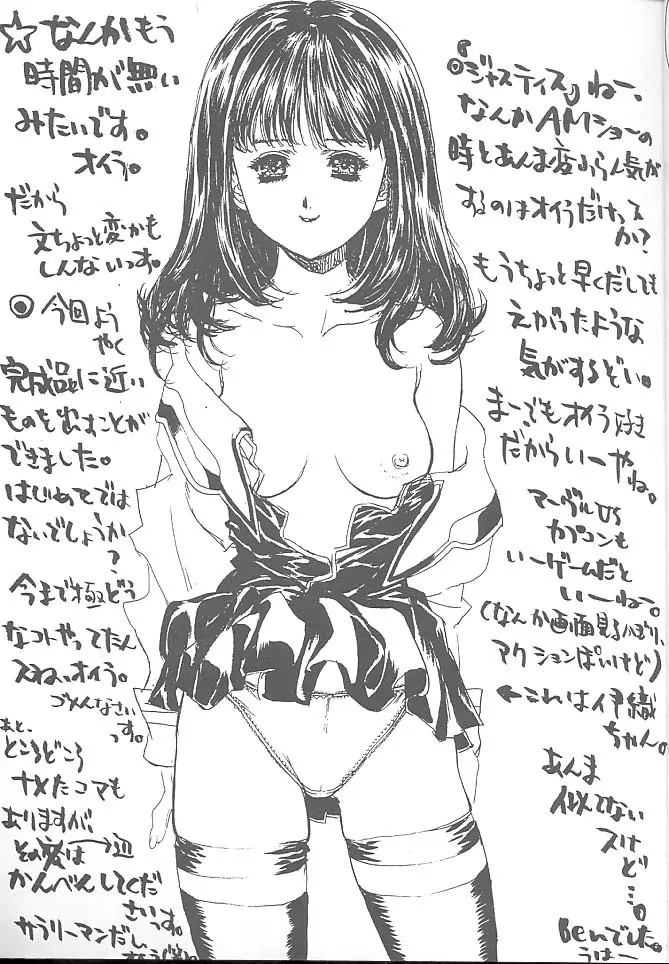 ☆なんかもう
時間が無い
みたいです。
オイラ。
だから
文ちょっと変かも
しんないっす。
◎今回よう
やく
完成品に近い
ものを出すことが
できました。
はじめてでは
ないでしょうか
?
今まで極どう
なコトやってたん
スね、オイラ。
ゴメんなさい
っす。
あと、
ところどころ
ナメたコマも
ありますが、
かんべんしてくだ
さいっす。
サラリーマンだし
『ジャスティス』ねー、
なんかAMショーの
時とあんま変
気が
するのはオイラだけっスか?
もうちょっと早くだしても
えがったような
気がするぞい。
まーでもオイラ好き
だからいーやね。
マーヴルVS
カプコンも
いーゲームだと
いーねー。
(なんか画面見るかぎり、
アクションぽいけど)
←これは伊織
ちゃん。
あんま
似てない
スけ
ど…。
Beんでした。
うはー